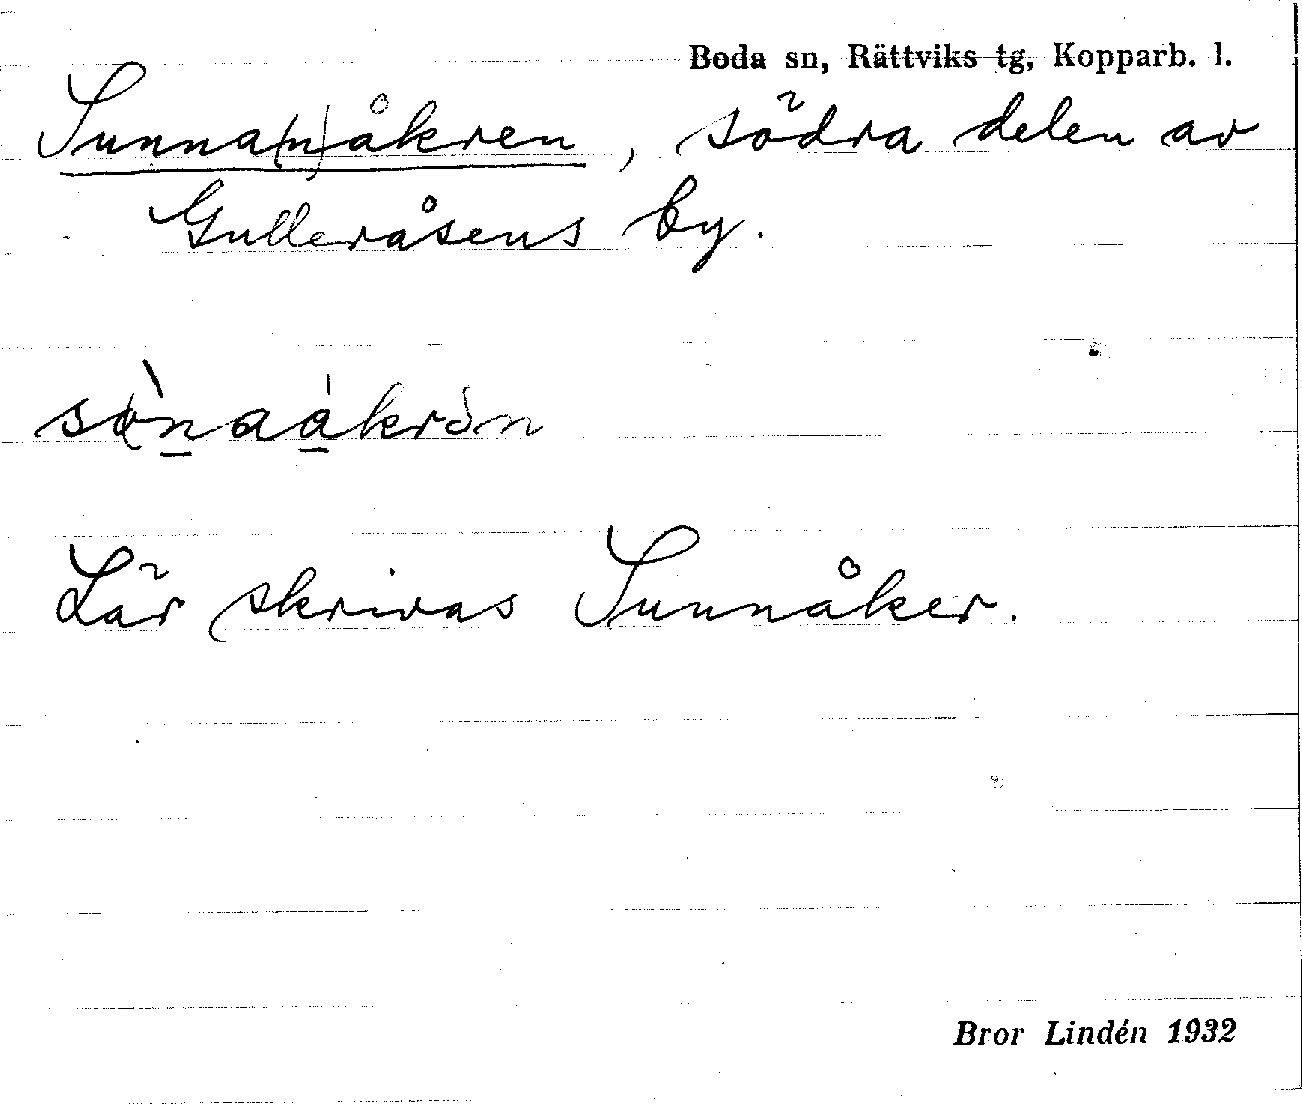 Boda sn, Rättviks tg, Kopparb. l.
Sunna(n)åkren, södra delen av
Gulleråsens by.
Lär skrivas Sunnåker.
Bror Lindén 1932